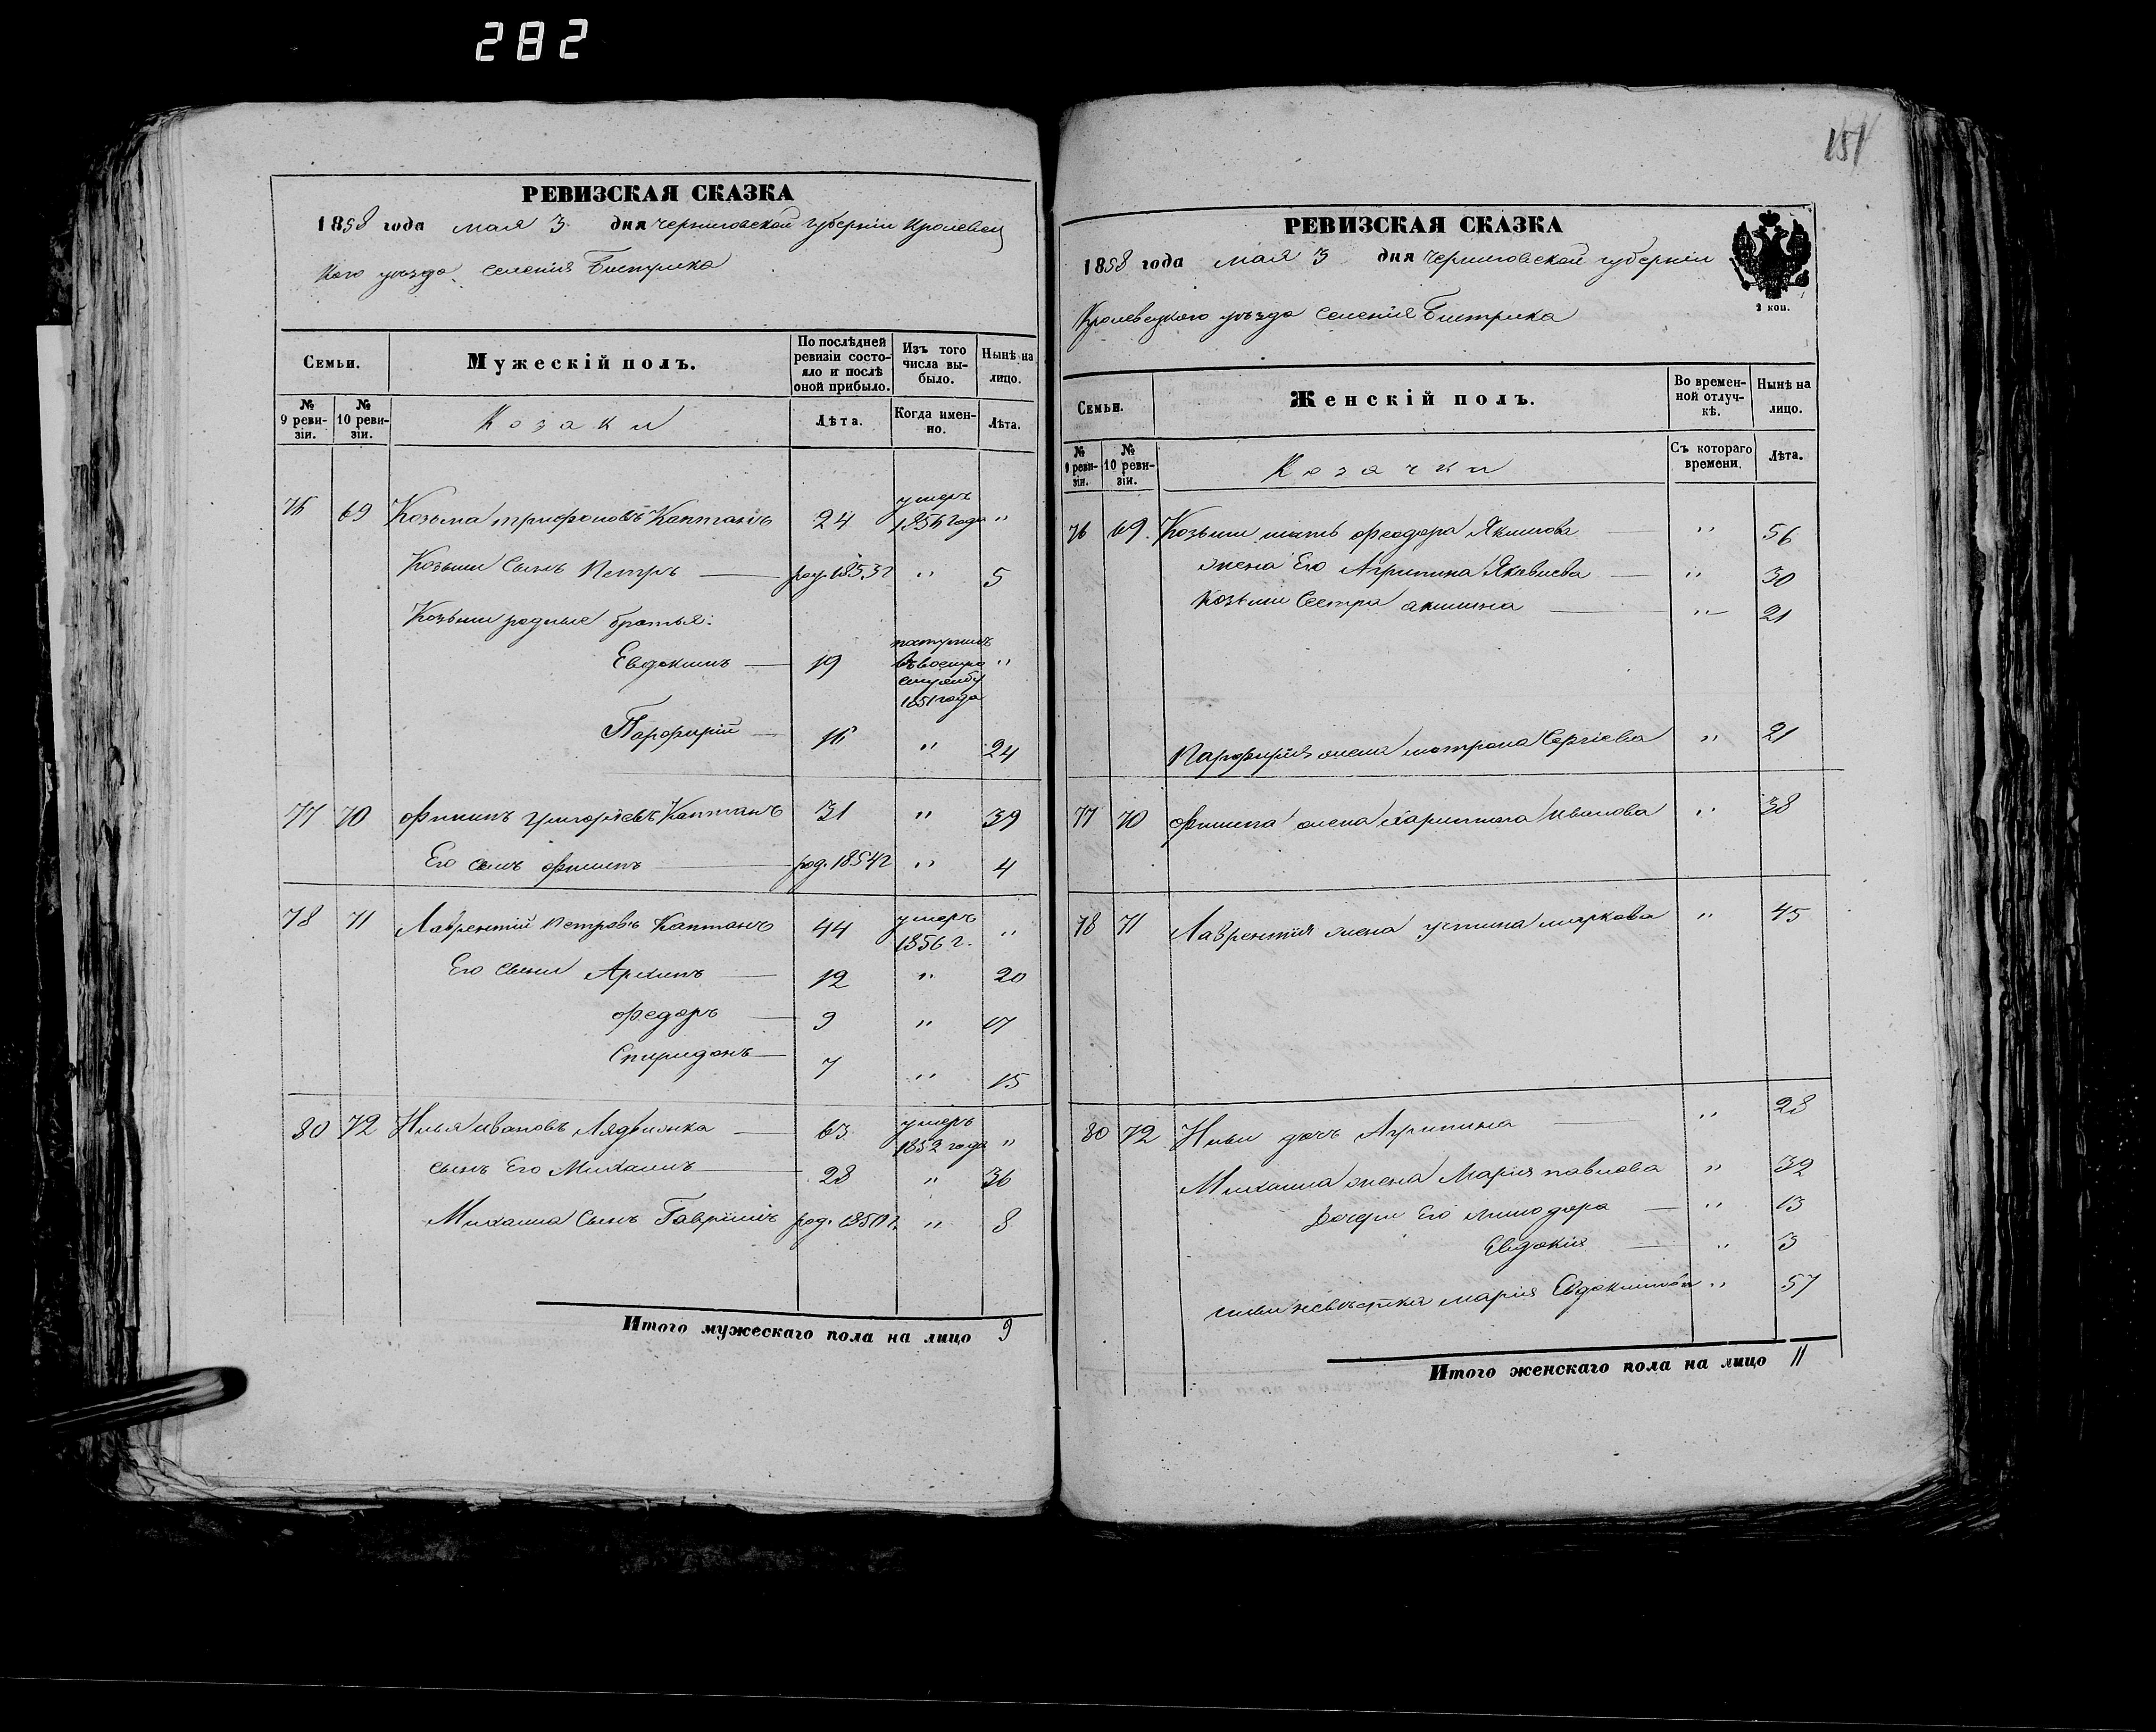 282
РЕВИЗСКАЯ СКАЗКА
1858 года мая 3 дня Черниговской губерніи Кролевец
кого уезда селенія Быстрика
Семьи.
Мужескій полъ.
По послѣдней ревизіи состо-
яло и послѣ оной прибыло.
Изъ того числа вы-
было.
Нынѣ на лицо.
№ 9 реви-
зіи.
№ 10 реви-
зіи.
Козаки
Лѣта.
Когда имен-
но.
Лѣта.
76 69 Козьма Трифоновъ Каптанъ 24 умеръ 1856 года "
Козьми сынъ Петръ — род. 1853 г " 5
Козьми родные братья:
Евдокимъ — 19 поступилъ въ военную службу 1851 года "
Парфирій — 16 " 24
77 70 Филипъ Григорьевъ Каптанъ 31 " 39
Его сынъ Филипъ — род. 1854 г " 4
78 71 Лаврентій Петровъ Каптанъ 44 умеръ 1856 г. "
Его сыны Архипъ — 12 " 20
Федоръ — 9 " 17
Спиридонъ — 7 " 15
80 72 Илья Ивановъ — 63 умеръ 1852 года "
сынъ Его Михаилъ — 28 " 36
Михаила сынъ Гаврiилъ род. 1850 г. " 8
Итого мужескаго пола на лицо 9
151
РЕВИЗСКАЯ СКАЗКА
1858 года мая 3 дня Черниговской губерніи
Кролевецкого уѣзда селенія Быстрика
2 коп.
Семьи.
Женскій полъ.
Во времен-
ной отлуч-
кѣ.
Нынѣ на лицо.
№ 9 реви-
зіи.
№ 10 реви-
зіи.
Козачки
Съ котораго времени.
Лѣта.
76 69 Козьми мать Феодора Якимова — " 56
жена Его Агрипина Яковлева — " 30
Козьми сестра акилина — " 21
Парфирія жена матрона Сергіева " 21
77 70 Филипа жена Харитина Иванова " 38
78 71 Лаврентія жена устина маркова " 45
80 72 Ильи дочь Агрипина — " 28
Михаила жена Марія павлова " 32
Дочери Его — " 13
Евдокія — " 3
ильи невѣстка марія Евдокимова " 57
Итого женскаго пола на лицо 11